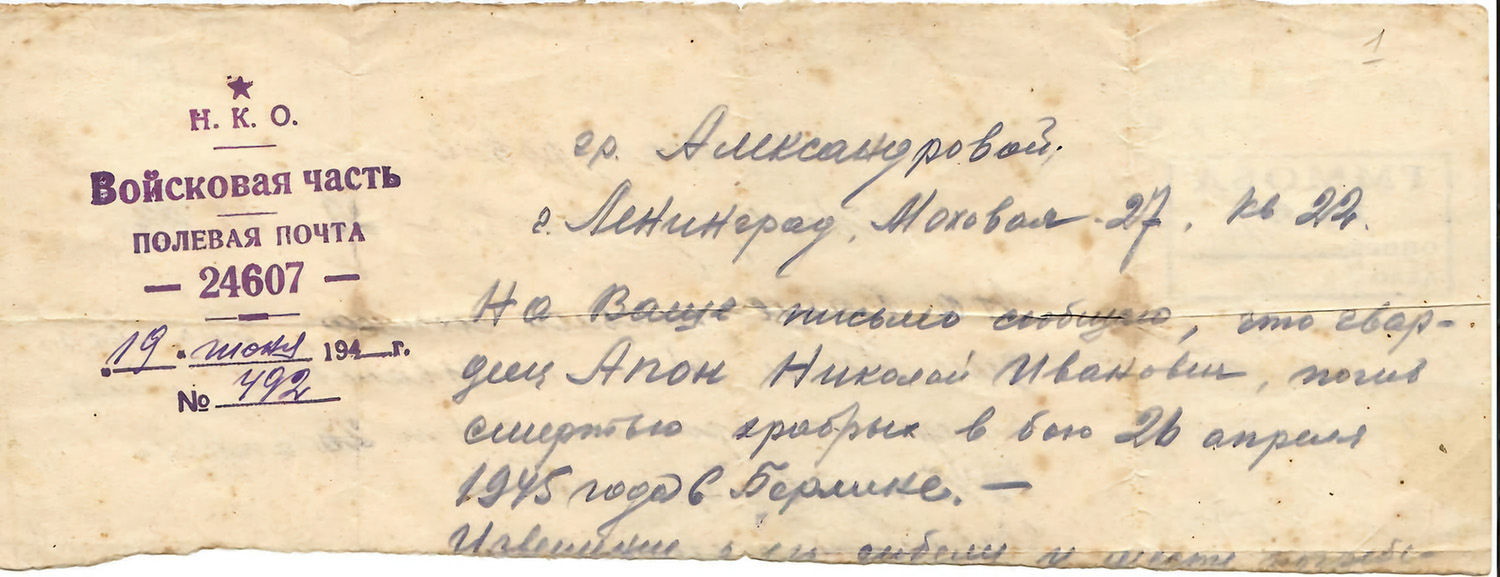 Н. К. О.
Войсковая часть
ПОЛЕВАЯ ПОЧТА
— 24607 —
19 июня 194 г.
№ 492
1
гр. Александровой.
г. Ленинград, Моховая - 27, кв 22.
На Ваше письмо сообщаю, что гвар-
деец Апон Николай Иванович, погиб
смертью храбрых в бою 26 апреля
1945 года в Берлине. —
Извещение о его гибели и месте погребе-